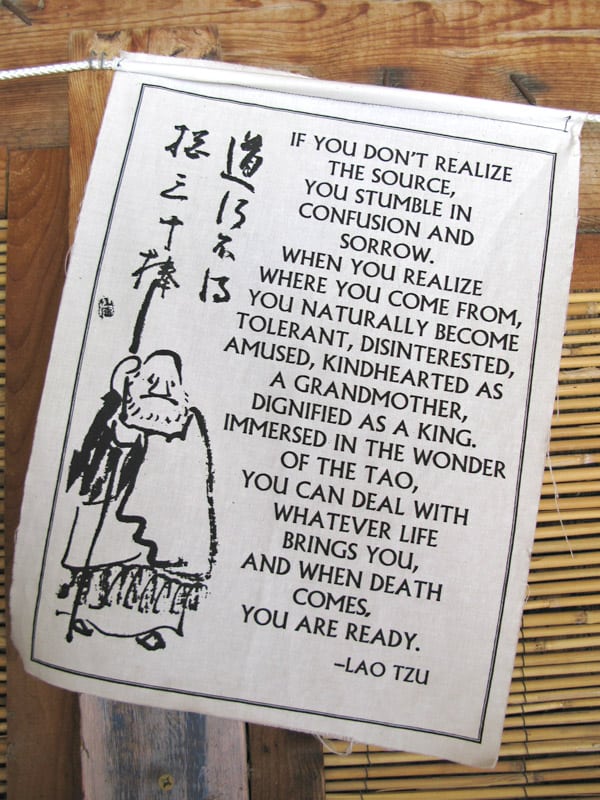 道得不得
三十棒
IF YOU DON'T REALIZE
THE SOURCE,
YOU STUMBLE IN
CONFUSION AND
SORROW.
WHEN YOU REALIZE
WHERE YOU COME FROM,
YOU NATURALLY BECOME
TOLERANT, DISINTERESTED,
AMUSED, KINDHEARTED AS
A GRANDMOTHER,
DIGNIFIED AS A KING.
IMMERSED IN THE WONDER
OF THE TAO,
YOU CAN DEAL WITH
WHATEVER LIFE
BRINGS YOU,
AND WHEN DEATH
COMES,
YOU ARE READY.
–LAO TZU